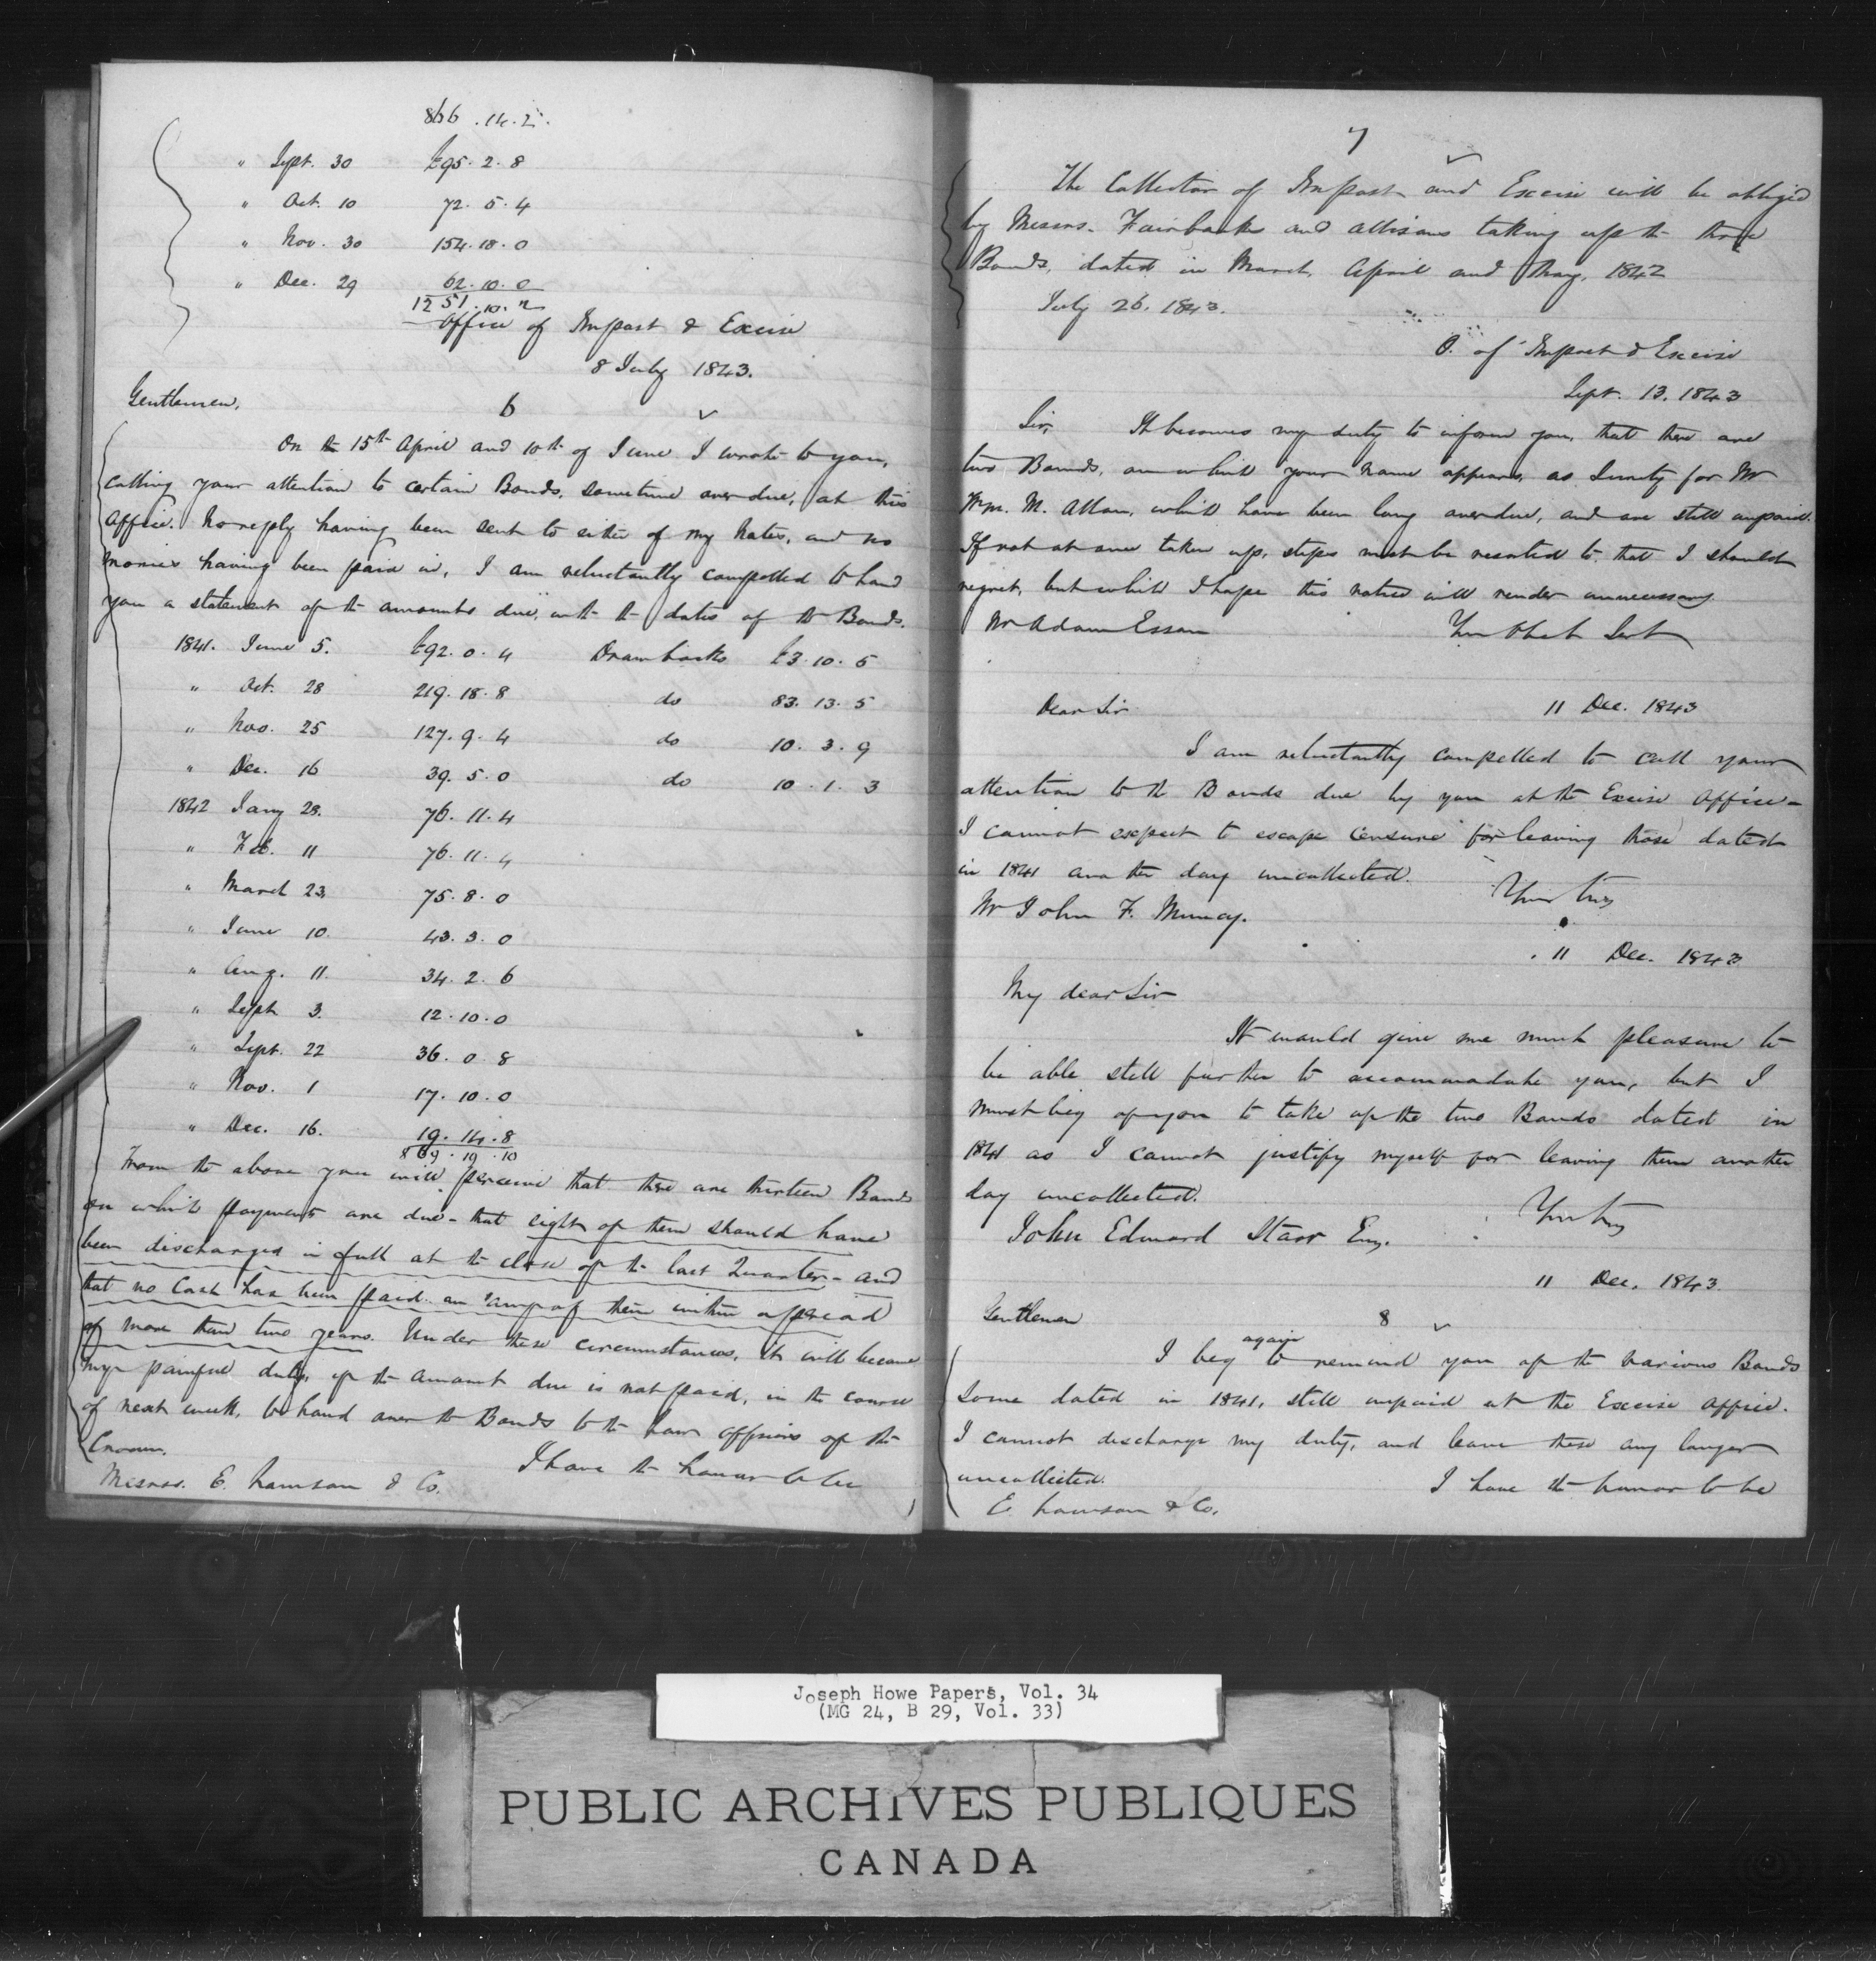 866.14.2.
" Sept. 30 £95.2.8
" Oct. 10 72.5.4
" Nov. 30 154.18.0
" Dec. 29 62.10.0
1251.10.2
Office of Impost & Excise
8 July 1843.
Gentlemen,
6
On the 15th April and 10th of June I wrote to you,
calling your attention to certain Bonds, sometime over due, at this
Office. No reply having been sent to either of my Notes, and no
monies having been paid in, I am reluctantly compelled to hand
you a statement of the amounts due, with the dates of the Bonds.
1841. June 5. £92.0.4 Drawbacks £3.10.5
" Oct. 28 219.18.8 do 83.13.5
" Nov. 25 127.9.4 do 10.3.9
" Dec. 16 39.5.0 do 10.1.3
1842 Jany 28. 76.11.4
" Feb. 11 76.11.4
" March 23 75.8.0
" June 10. 43.3.0
" Aug. 11. 34.2.6
" Sept 3. 12.10.0
" Sept. 22 36.0.8
" Nov. 1 17.10.0
" Dec. 16. 19.14.8
869.19.10
From the above you will perceive that there are thirteen Bonds
on which payments are due - that eight of them should have
been discharged in full at the close of the last Quarter - and
that no Cash has been paid on any of them within a period
of more than two years. Under these circumstances, it will become
my painful duty, if the amount due is not paid, in the course
of next week, to hand over the Bonds to the Law Officers of the
Crown.
I have the honor to be
Messrs. E. Lawson & Co.
7
The Collector of Impost and Excise will be obliged
by Messrs. Fairbanks and Allisons taking up the three
Bonds, dated in March, April and May, 1842
July 26. 1843.
O. of Impost & Excise
Sept. 13. 1843
Sir, It becomes my duty to inform you, that there are
two Bonds, on which your name appears, as Surety for Mr
Wm. M. Allan, which have been long overdue, and are still unpaid.
If not at once taken up, steps must be resorted to that I should
regret, but which I hope this notice will render unnecessary.
Mr Adam Esson Your Obet Sert
11 Dec. 1843
Dear Sir
I am reluctantly compelled to call your
attention to the Bonds due by you at the Excise Office -
I cannot expect to escape censure for leaving those dated
in 1841 another day uncollected.
Yours truly
Mr John F. Muncy.
11 Dec. 1843
My dear Sir
It would give me much pleasure to
be able still further to accommodate you, but I
must beg of you to take up the two Bonds dated in
1841 as I cannot justify myself for leaving them another
day uncollected.
Yours truly
John Edward Starr Esq.
11 Dec. 1843
Gentlemen 8
I beg again to remind you of the various Bonds
some dated in 1841, still unpaid at the Excise Office.
I cannot discharge my duty, and leave these any longer
uncollected.
I have the honor to be
E. Lawson & Co.
Joseph Howe Papers, Vol. 34
(MG 24, B 29, Vol. 33)
PUBLIC ARCHIVES PUBLIQUES
CANADA